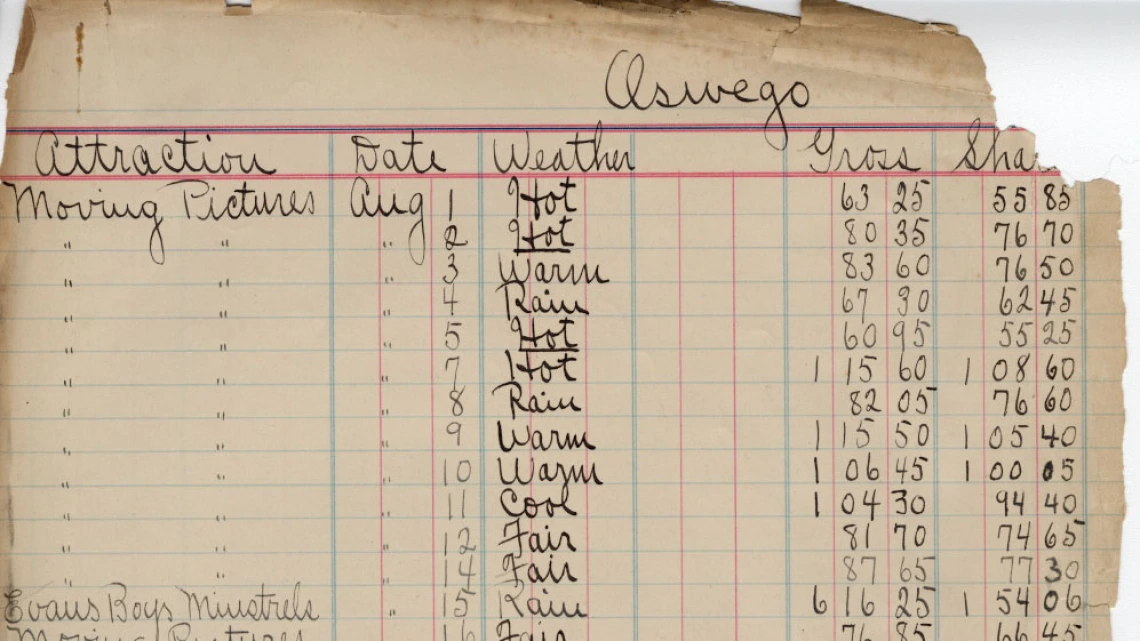 Oswego
Attraction Date Weather Gross Sha
Moving Pictures Aug 1 Hot 63 25 55 85
" " " 2 Hot 80 35 76 70
" " " 3 Warm 83 60 76 50
" " " 4 Rain 67 30 62 45
" " " 5 Hot 60 95 55 25
" " " 7 Hot 1 15 60 1 08 60
" " " 8 Rain 82 05 76 60
" " " 9 Warm 1 15 50 1 05 40
" " " 10 Warm 1 06 45 1 00 05
" " " 11 Cool 1 04 30 94 40
" " " 12 Fair 81 70 74 65
" " " 14 Fair 87 65 77 30
Evans Boys Minstrels " 15 Rain 6 16 25 1 54 06
Moving Pictures 16 Fair 76 85 66 45